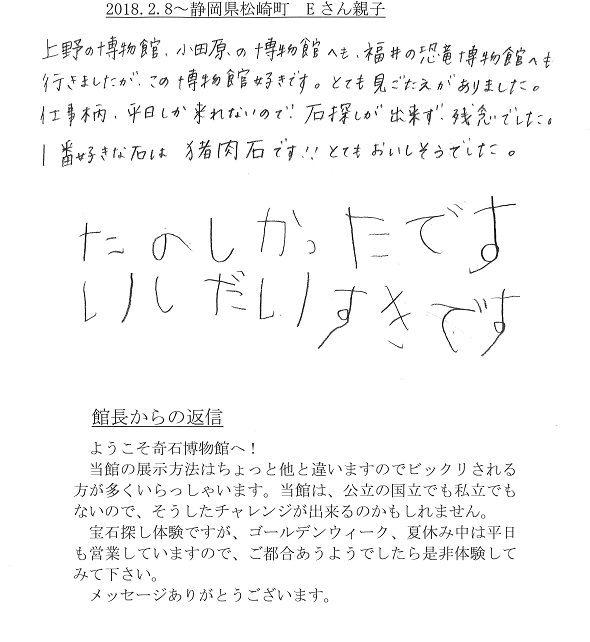 2018.2.8～静岡県松崎町　Ｅさん親子
上野の博物館、小田原の博物館へも、福井の恐竜博物館へも
行きましたが、この博物館好きです。とても見ごたえがありました。
仕事柄、平日しか来れないので、石探しが出来ず、残念でした。
1番好きな石は　猪肉石です!!とてもおいしそうでした。
たのしかったです
いしだいすきです
館長からの返信
ようこそ奇石博物館へ！
当館の展示方法はちょっと他と違いますのでビックリされる
方が多くいらっしゃいます。当館は、公立の国立でも私立でも
ないので、そうしたチャレンジが出来るのかもしれません。
宝石探し体験ですが、ゴールデンウィーク、夏休み中は平日
も営業していますので、ご都合あうようでしたら是非体験して
みて下さい。
メッセージありがとうございます。